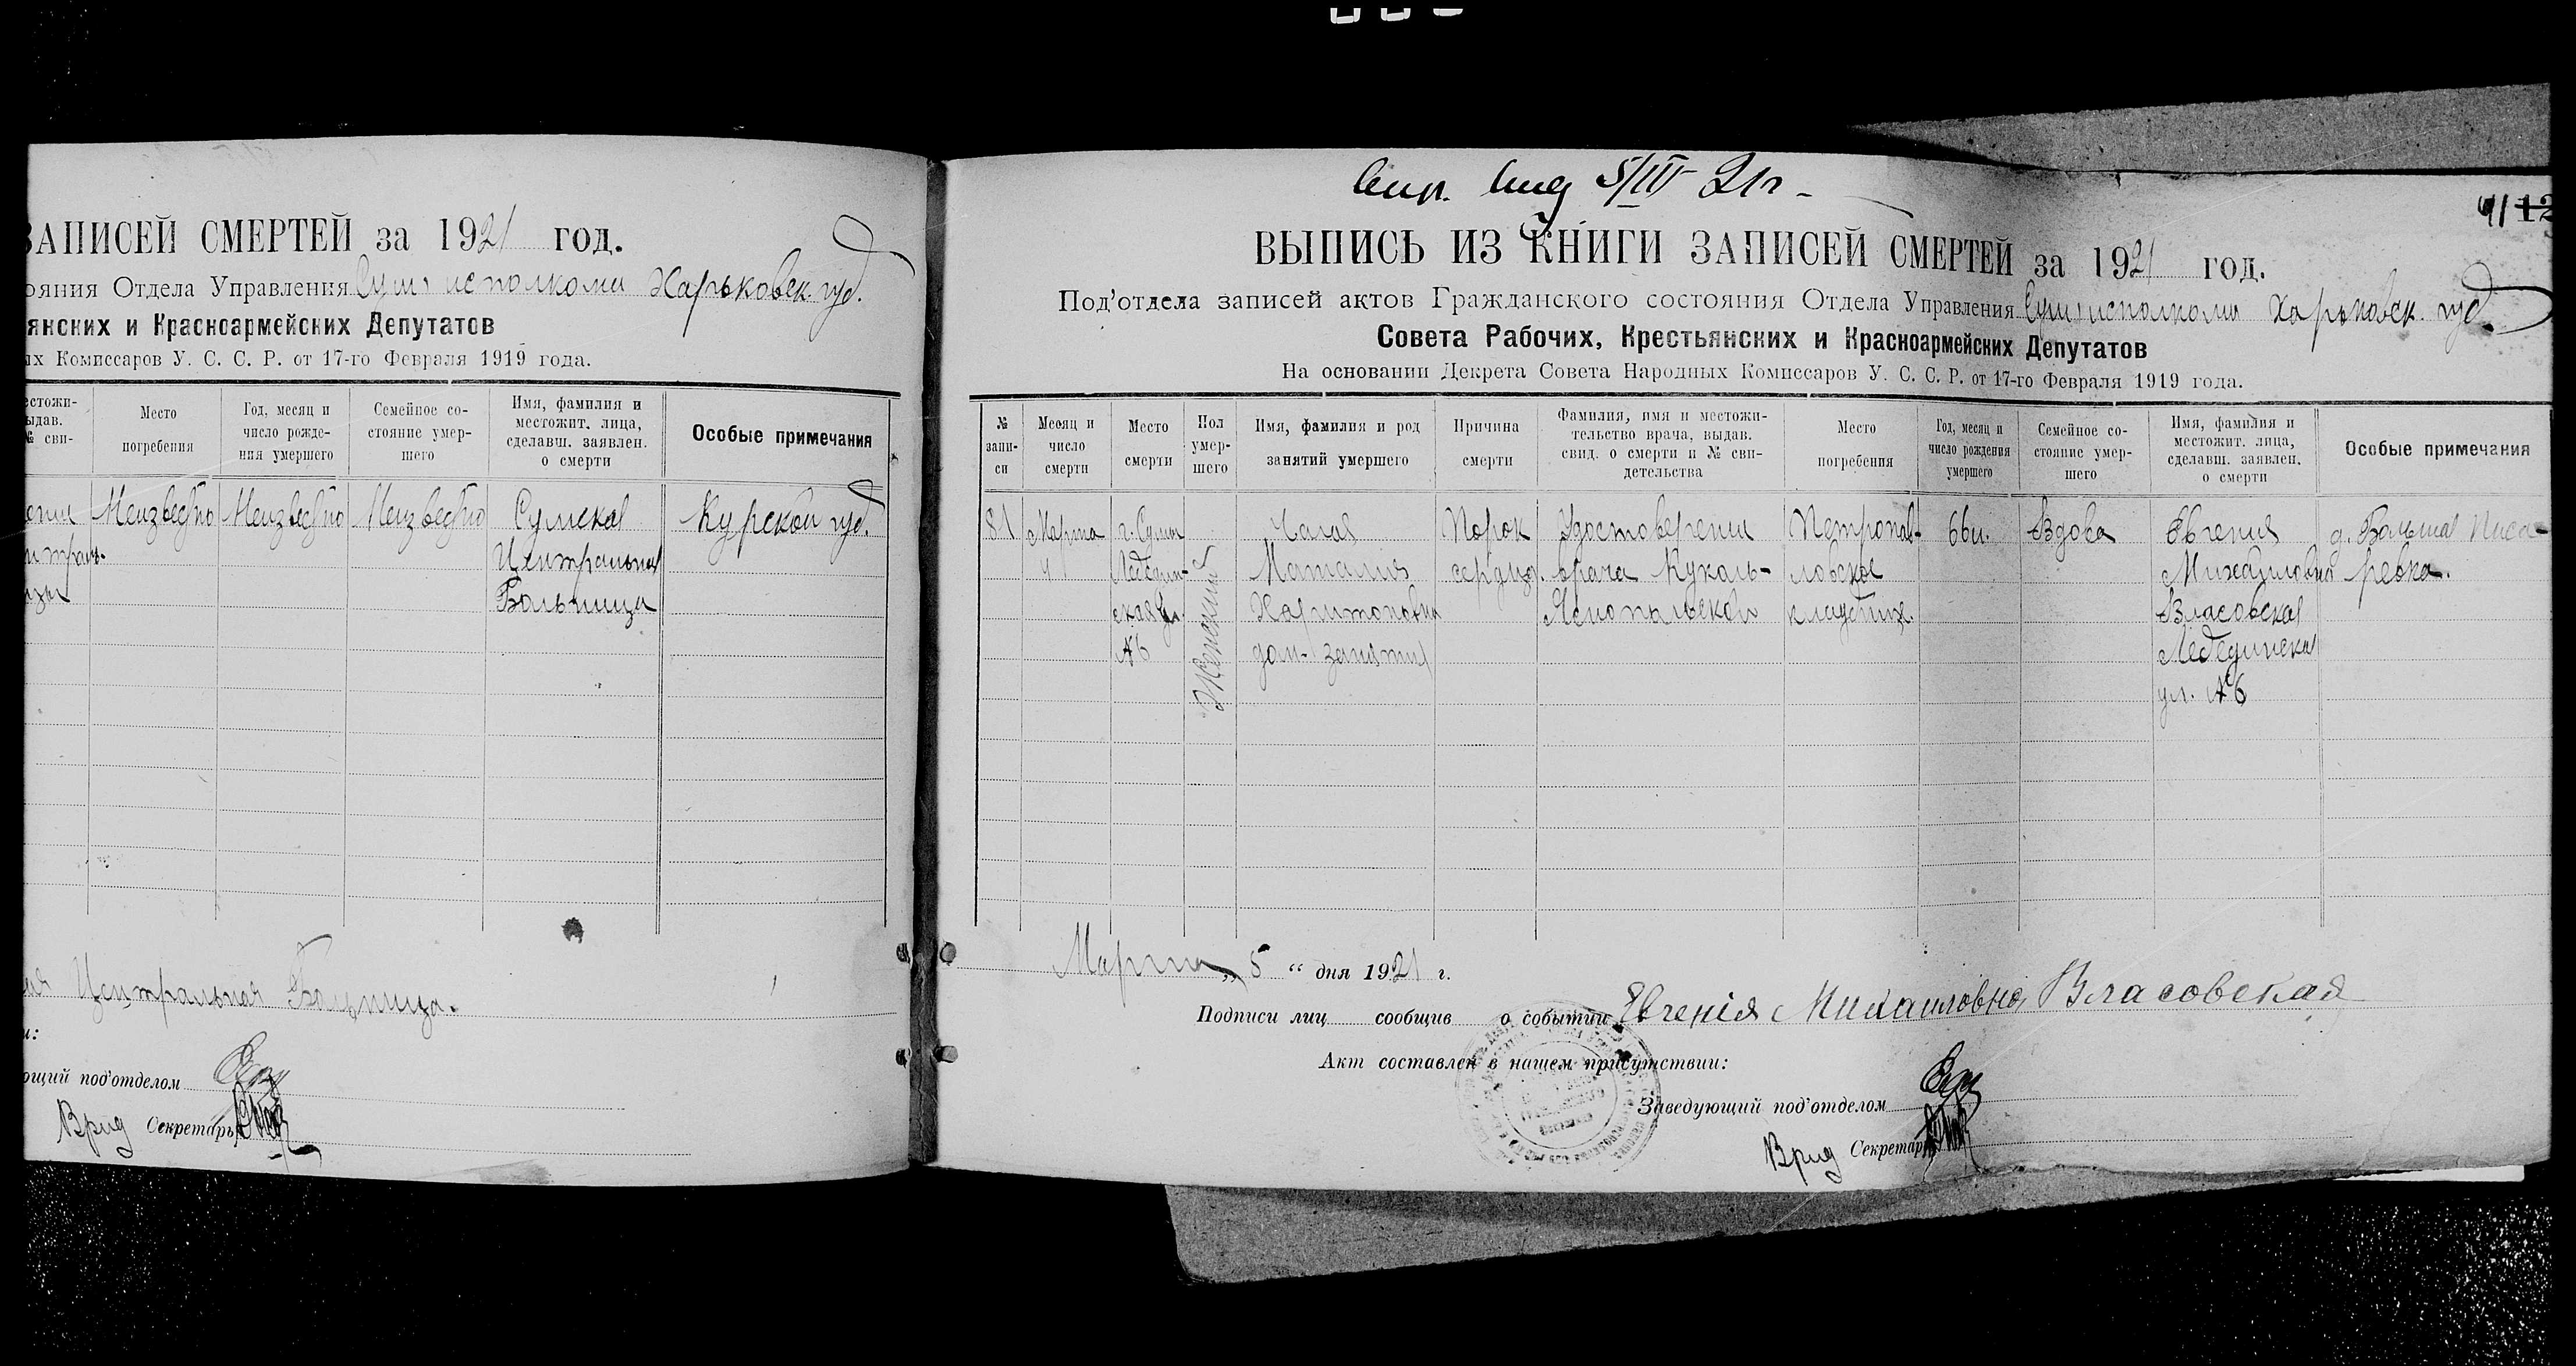 ЗАПИСЕЙ СМЕРТЕЙ за 1921 год.
ояния Отдела Управления Сум. исполкома Харьковск. губ.
янских и Красноармейских Депутатов
ых Комиссаров У. С. С. Р. от 17-го Февраля 1919 года.
естожи-
ыдав.
№ сви-
Место
погребения
Год, месяц и
число рожде-
ния умершего
Семейное со-
стояние умер-
шего
Имя, фамилия и
местожит. лица,
сделавш. заявлен.
о смерти
Особые примечания
Неизвестно
Неизвестно
Неизвестно
Сумская
Центральная
Больница
Курской губ.
Центральная Больница.
ющий под'отделом
Врид Секретарь
5/III 21г.
41 12
ВЫПИСЬ ИЗ КНИГИ ЗАПИСЕЙ СМЕРТЕЙ за 1921 год.
Под'отдела записей актов Гражданского состояния Отдела Управления Сум. исполкома Харьковск. губ.
Совета Рабочих, Крестьянских и Красноармейских Депутатов
На основании Декрета Совета Народных Комиссаров У. С. С. Р. от 17-го Февраля 1919 года.
№
запи-
си
Месяц и
число
смерти
Место
смерти
Пол
умер-
шего
Имя, фамилия и род
занятий умершего
Причина
смерти
Фамилия, имя и местожи-
тельство врача, выдав.
свид. о смерти и № сви-
детельства
Место
погребения
Год, месяц и
число рождения
умершего
Семейное со-
стояние умер-
шего
Имя, фамилия и
местожит. лица,
сделавш. заявлен.
о смерти
Особые примечания
81
Марта
4
г. Сумы
Лебедин-
ская ул.
№6
Женский
Чалая
Наталия
Харитоновна
дом. занятия
Порок
сердца.
Удостоверении
врача Куколь-
Яснопольской
Петропав-
ловское
кладбище.
66л.
Вдова
Евгения
Михайловна
Власовская
Лебединская
ул. №6
д. Большая Писа-
ревка.
Марта „ 5 “ дня 1921 г.
Подписи лиц сообщив о событии Евгенія Михаиловна Власовская
Акт составлен в нашем присутствии:
Заведующий под'отделом
Врид Секретарь